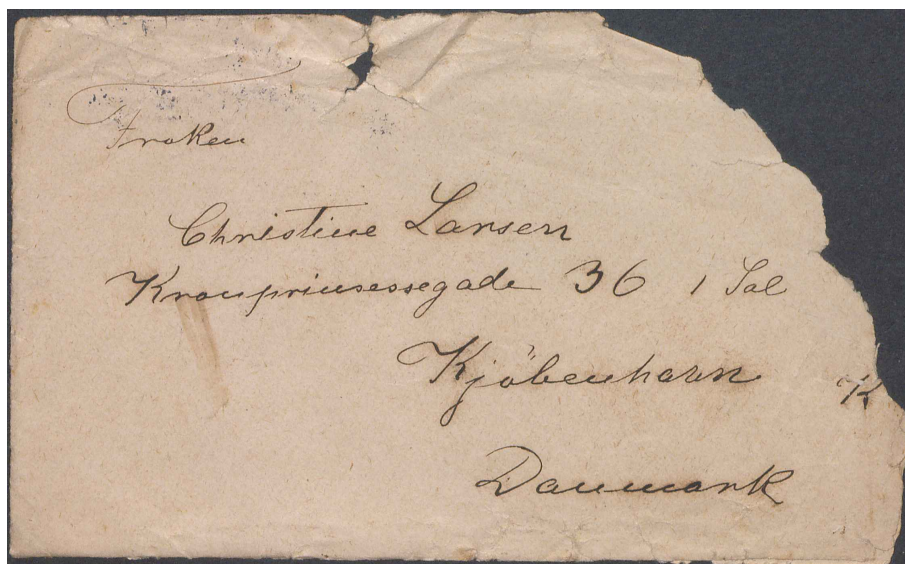 Frøken
Christine Larsen
Kronprinsessegade 36 1 Sal
Kjöbenhavn K
Danmark